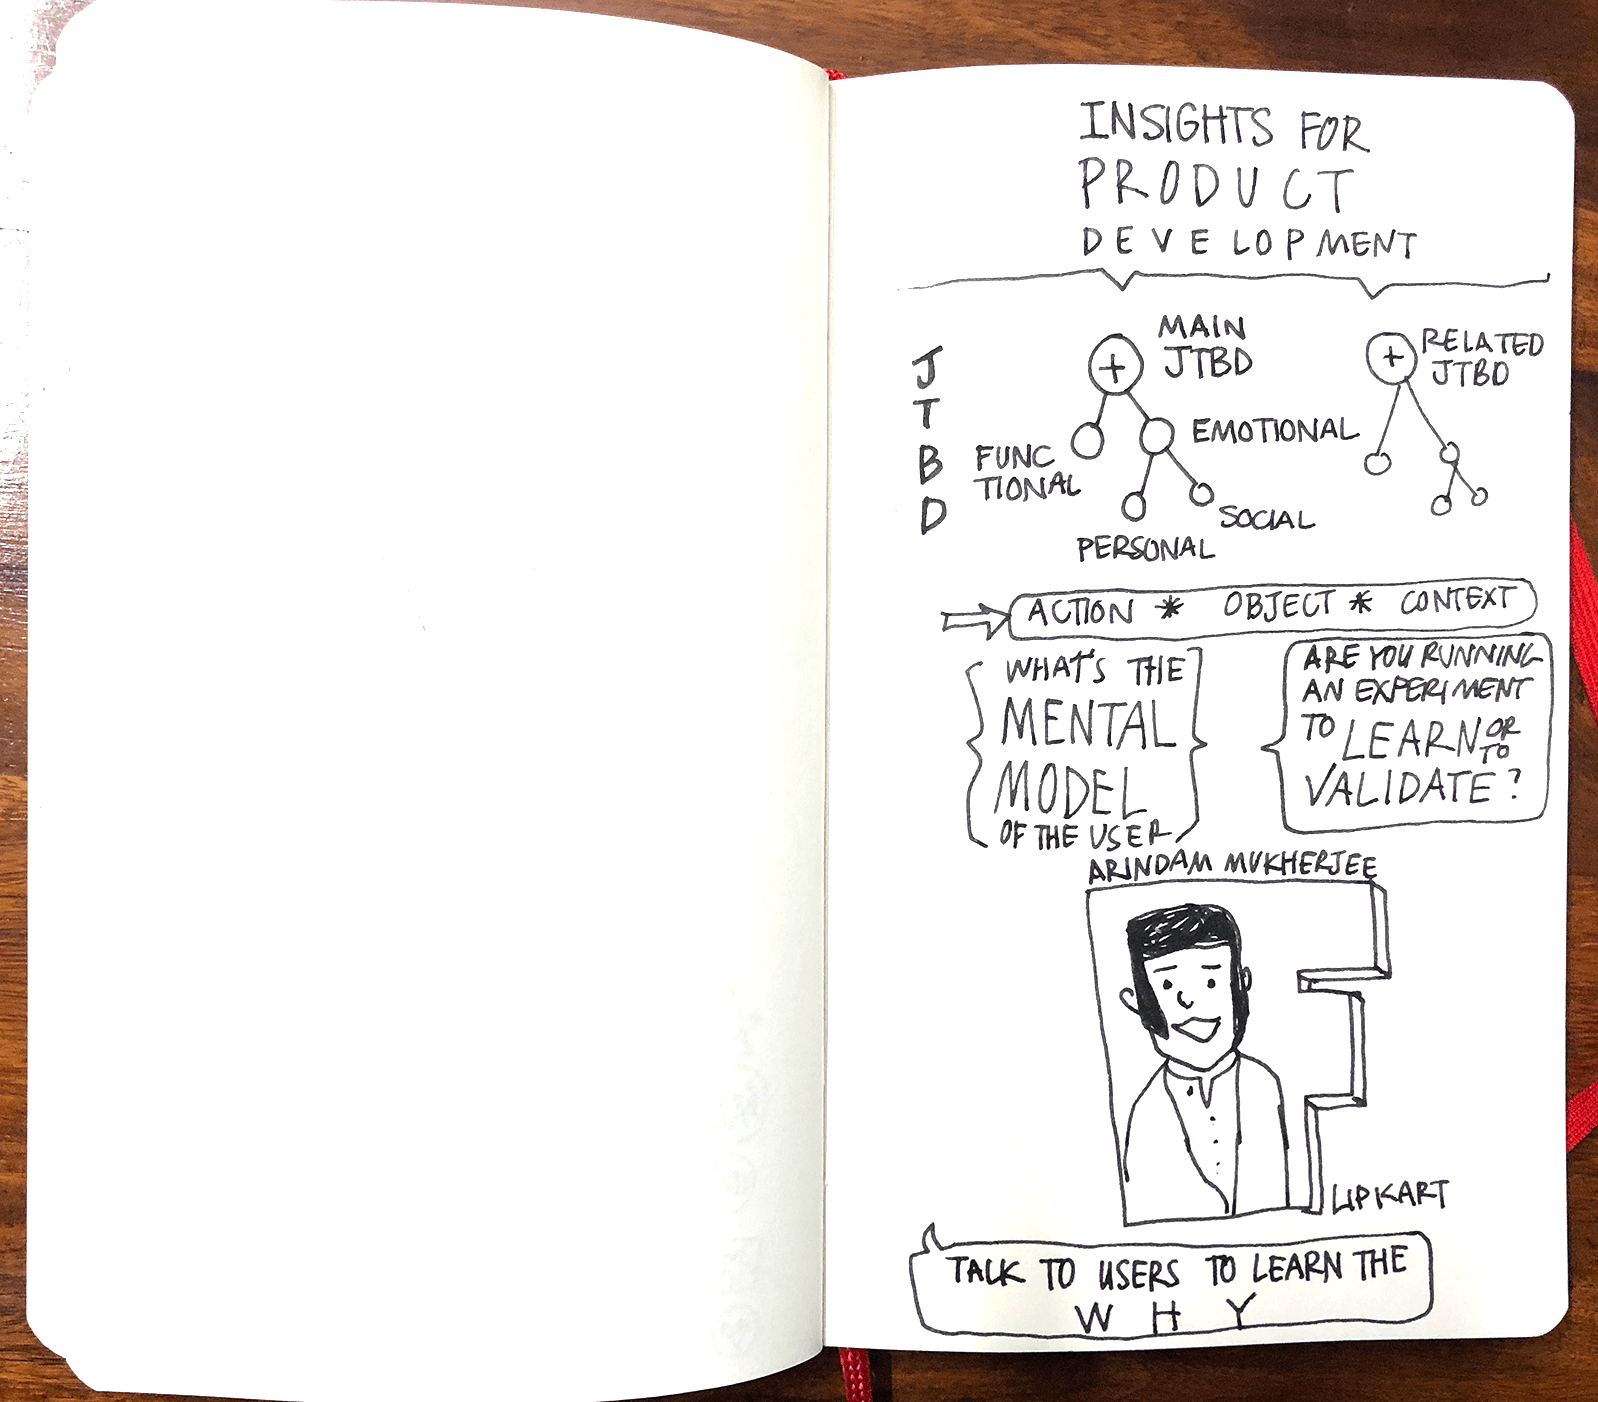 INSIGHTS FOR
PRODUCT
DEVELOPMENT
JTBD
MAIN
JTBD
FUNC
TIONAL
EMOTIONAL
PERSONAL
SOCIAL
RELATED
JTBD
ACTION * OBJECT * CONTEXT
WHAT'S THE
MENTAL
MODEL
OF THE USER
ARE YOU RUNNING
AN EXPERIMENT
TO LEARN OR TO
VALIDATE?
ARINDAM MUKHERJEE
FLIPKART
TALK TO USERS TO LEARN THE
WHY